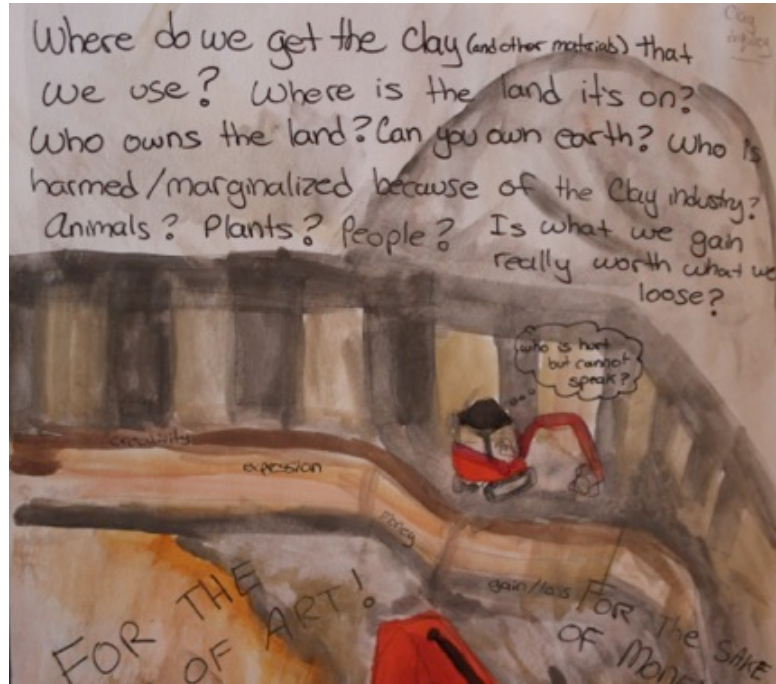 Where do we get the Clay (and other materials) that
we use? Where is the land it's on?
Who owns the land? Can you own earth? Who is
harmed/marginalized because of the Clay industry?
Animals? Plants? People? Is what we gain
really worth what we
loose?
who is hurt
but cannot
speak?
creativity
expression
money
gain/loss
FOR THE
OF ART!
FOR THE SAKE
OF MONE